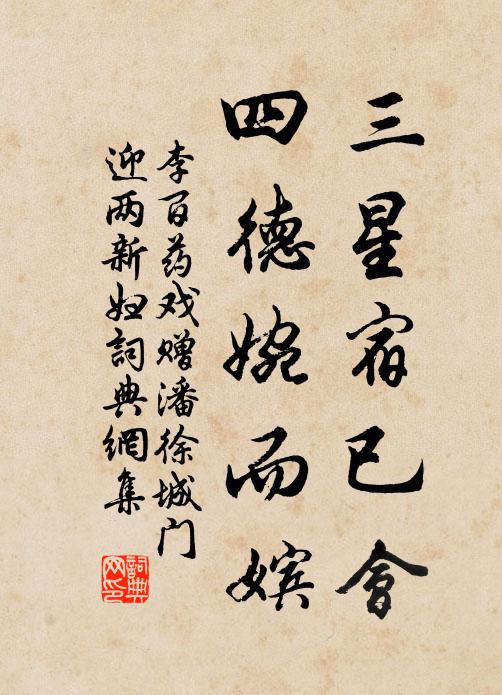 三星宿已會
四德婉而嬪
李百药戏赠潘徐城门
迎两新妇詞典網集
詞典網印